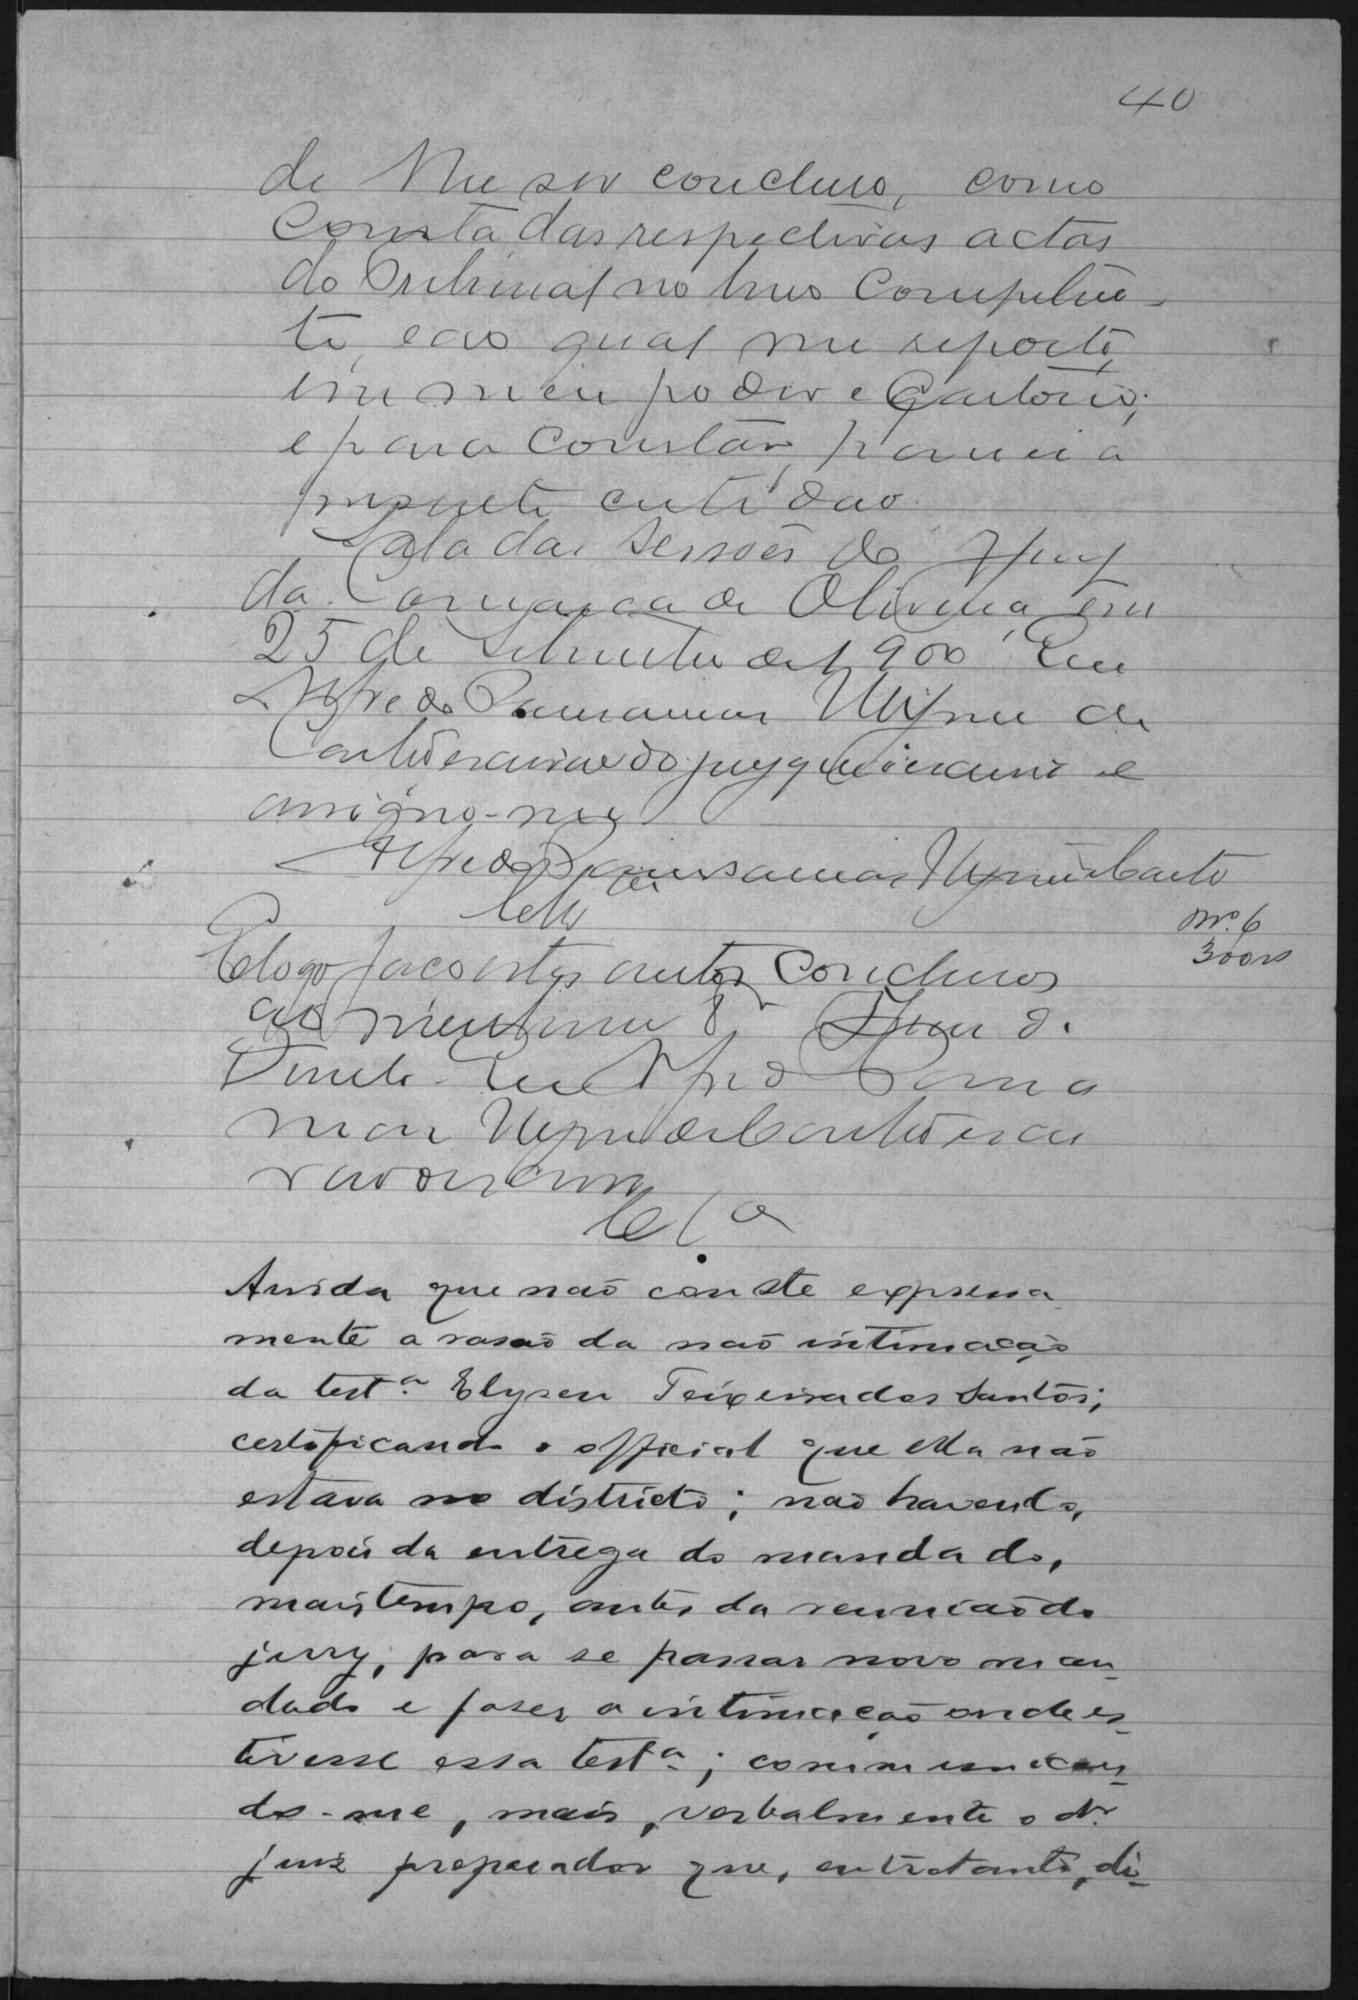 40
de me ser concluso, como
Consta das respectivas actas
do Tribunal no livro Competen-
te, e ao qual me reporto,
em meu poder e Cartorio;
e para Constar, passei a
presente certidão.
Sala das Sessões do Jury
da Comarca de Oliveira, em
25 de Setembro de 1900. Eu
Alfredo
Castro escrivão do jury que escrevi e
assigno-me
Alfredo Castro
Nº. 6
300rs
E logo faço estes autos Conclusos
ao Juiz de
Direito. Eu Alfredo
de Castro escri
vão escrevi
Clsª
Ainda que não conste expressa
mente a rasão da não intimação
da testª. Elyseu Teixeira dos Santos;
certificando o official que ella não
estava no districto; não havendo,
depois da entrega do mandado,
mais tempo, antes da reunião do
jury, para se passar novo man-
dado e faser a intimação onde es-
tivesse essa testª.; communican-
do-me, mais, verbalmente o dr.
juiz preparador que, entretanto, di-